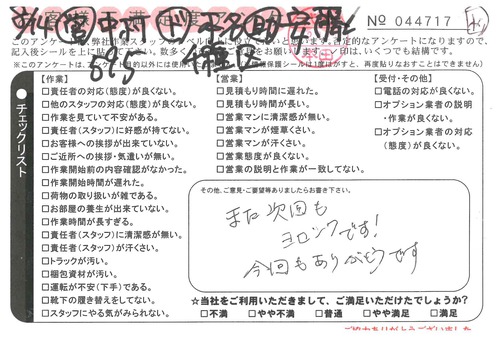 No 044717
このアンケートは、弊社作業スタッフのレベル向上に役立て
記入後シールを上に貼って
※このアンケートは、アンケート目的以外には使用
【作業】
□責任者の対応（態度）が良くない。
□他のスタッフの対応（態度）が良くない。
□作業を見ていて不安がある。
□責任者（スタッフ）に好感が持てない。
□お客様への挨拶が出来ていない。
□ご近所への挨拶・気遣いが無い。
□作業開始前の内容確認がなかった。
□作業開始時間が遅れた。
□荷物の取り扱いが雑である。
□お部屋の養生が出来ていない。
□作業時間が長すぎる。
□責任者（スタッフ）に清潔感が無い。
□責任者（スタッフ）が汗くさい。
□トラックが汚い。
□梱包資材が汚い。
□運転が不安（下手）である。
□靴下の履き替えをしてない。
□スタッフにやる気がみられない。
【営業】
□見積もり時間に遅れた。
□見積もり時間が長い。
□営業マンに清潔感が無い。
□営業マンが煙草くさい。
□営業マンが汗くさい。
□営業態度が良くない。
□営業の説明と作業が一致してない。
【受付・その他】
□電話の対応が良くない。
□オプション業者の説明
・作業が良くない。
□オプション業者の対応
（態度）が良くない。
●チェックリスト
その他、ご意見・ご要望等ありましたらお書き下さい。
また次回も
ヨロシクです!
今回もありがとうです
☆当社をご利用いただきまして、ご満足いただけたでしょうか?
□不満 □やや不満 □普通 □やや満足 □満足
ご協力ありがとうございました